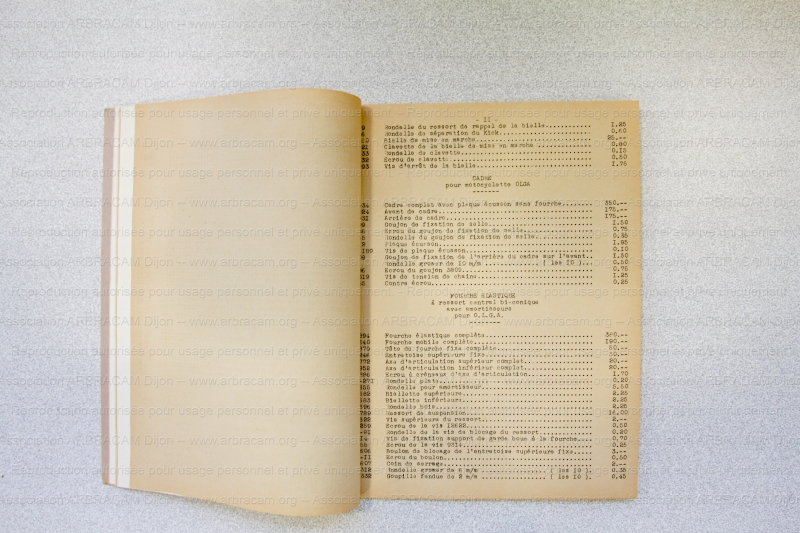 - II -
Rondelle du ressort de rappel de la bielle.............. I.25
Rondelle de séparation du Kick.............. 0,60
Bielle de mise en marche.............. 25.--
Clavette de la bielle de mise en marche .............. 0,80
Rondelle de clavette.............. 0,15
Ecrou de clavett.............. 0,50
Vis d'arrêt de la bielle.............. I,75
CADRE
pour motocyclette OLGA
-------
Cadre complet avec plaque écusson sans fourche........ 350.--
Avant de cadre.............. 175,--
Arrière de cadre.............. 175,--
Goujon de fixation de selle.............. I.50
Ecrou du goujon de fixation de selle.............. 0.75
Rondelle du goujon de fixation de selle.............. 0,35
Plaque écusson.............. I,95
Vis de plaque écusson.............. 0,10
Goujon de fixation de l'arrière du cadre sur l'avant.. I,50
Rondelle grower de IO m/m .............. ( les IO )... 0,50
Ecrou du goujon 3809.............. 0,75
Vis de tension de chaîne.............. I.25
Contre écrou.............. 0.25
FOURCHE ELASTIQUE
à ressort central bi-conique
avec amortisseurs
pour O.L.G.A.
-------
Fourche élastique complète.............. 380,--
Fourche mobile complète.............. I90.--
Tête de fourche fixe complète.............. 80,--
Entretoise supérieure fixe.............. 30.--
Axe d'articulation supérieur complet.............. 20.--
Axe d'articulation inférieur complet.............. 20.--
Ecrou à créneaux d'axe d'articulation.............. I.70
Rondelle plate.............. 0.20
Rondelle pour amortisseur.............. 0,50
Biellette supérieure.............. 2.25
Biellette inférieure.............. 2.25
Rondelle bois.............. 2.25
Ressort de suspension.............. 16,00
Vis supérieure du ressort.............. 2.--
Ecrou de la vis I2622.............. 0,50
Rondelle de la vis de blocage du ressort.............. 0,20
Vis de fixation support de garde boue à la fourche.... 0,70
Ecrou de la vis 9214.............. 0,25
Boulon de blocage de l'entretoise supérieure fixe..... 3.--
Ecrou du boulon.............. 0,50
Coin de serrage.............. 2.--
Rondelle grower de 8 m/m .............. ( les IO ). 0.35
Goupille fendue de 2 m/m .............. ( les IO ). 0.45
Association ARBRACAM Dijon – www.arbracam.org
Reproduction autorisée pour usage personnel et privé uniquement